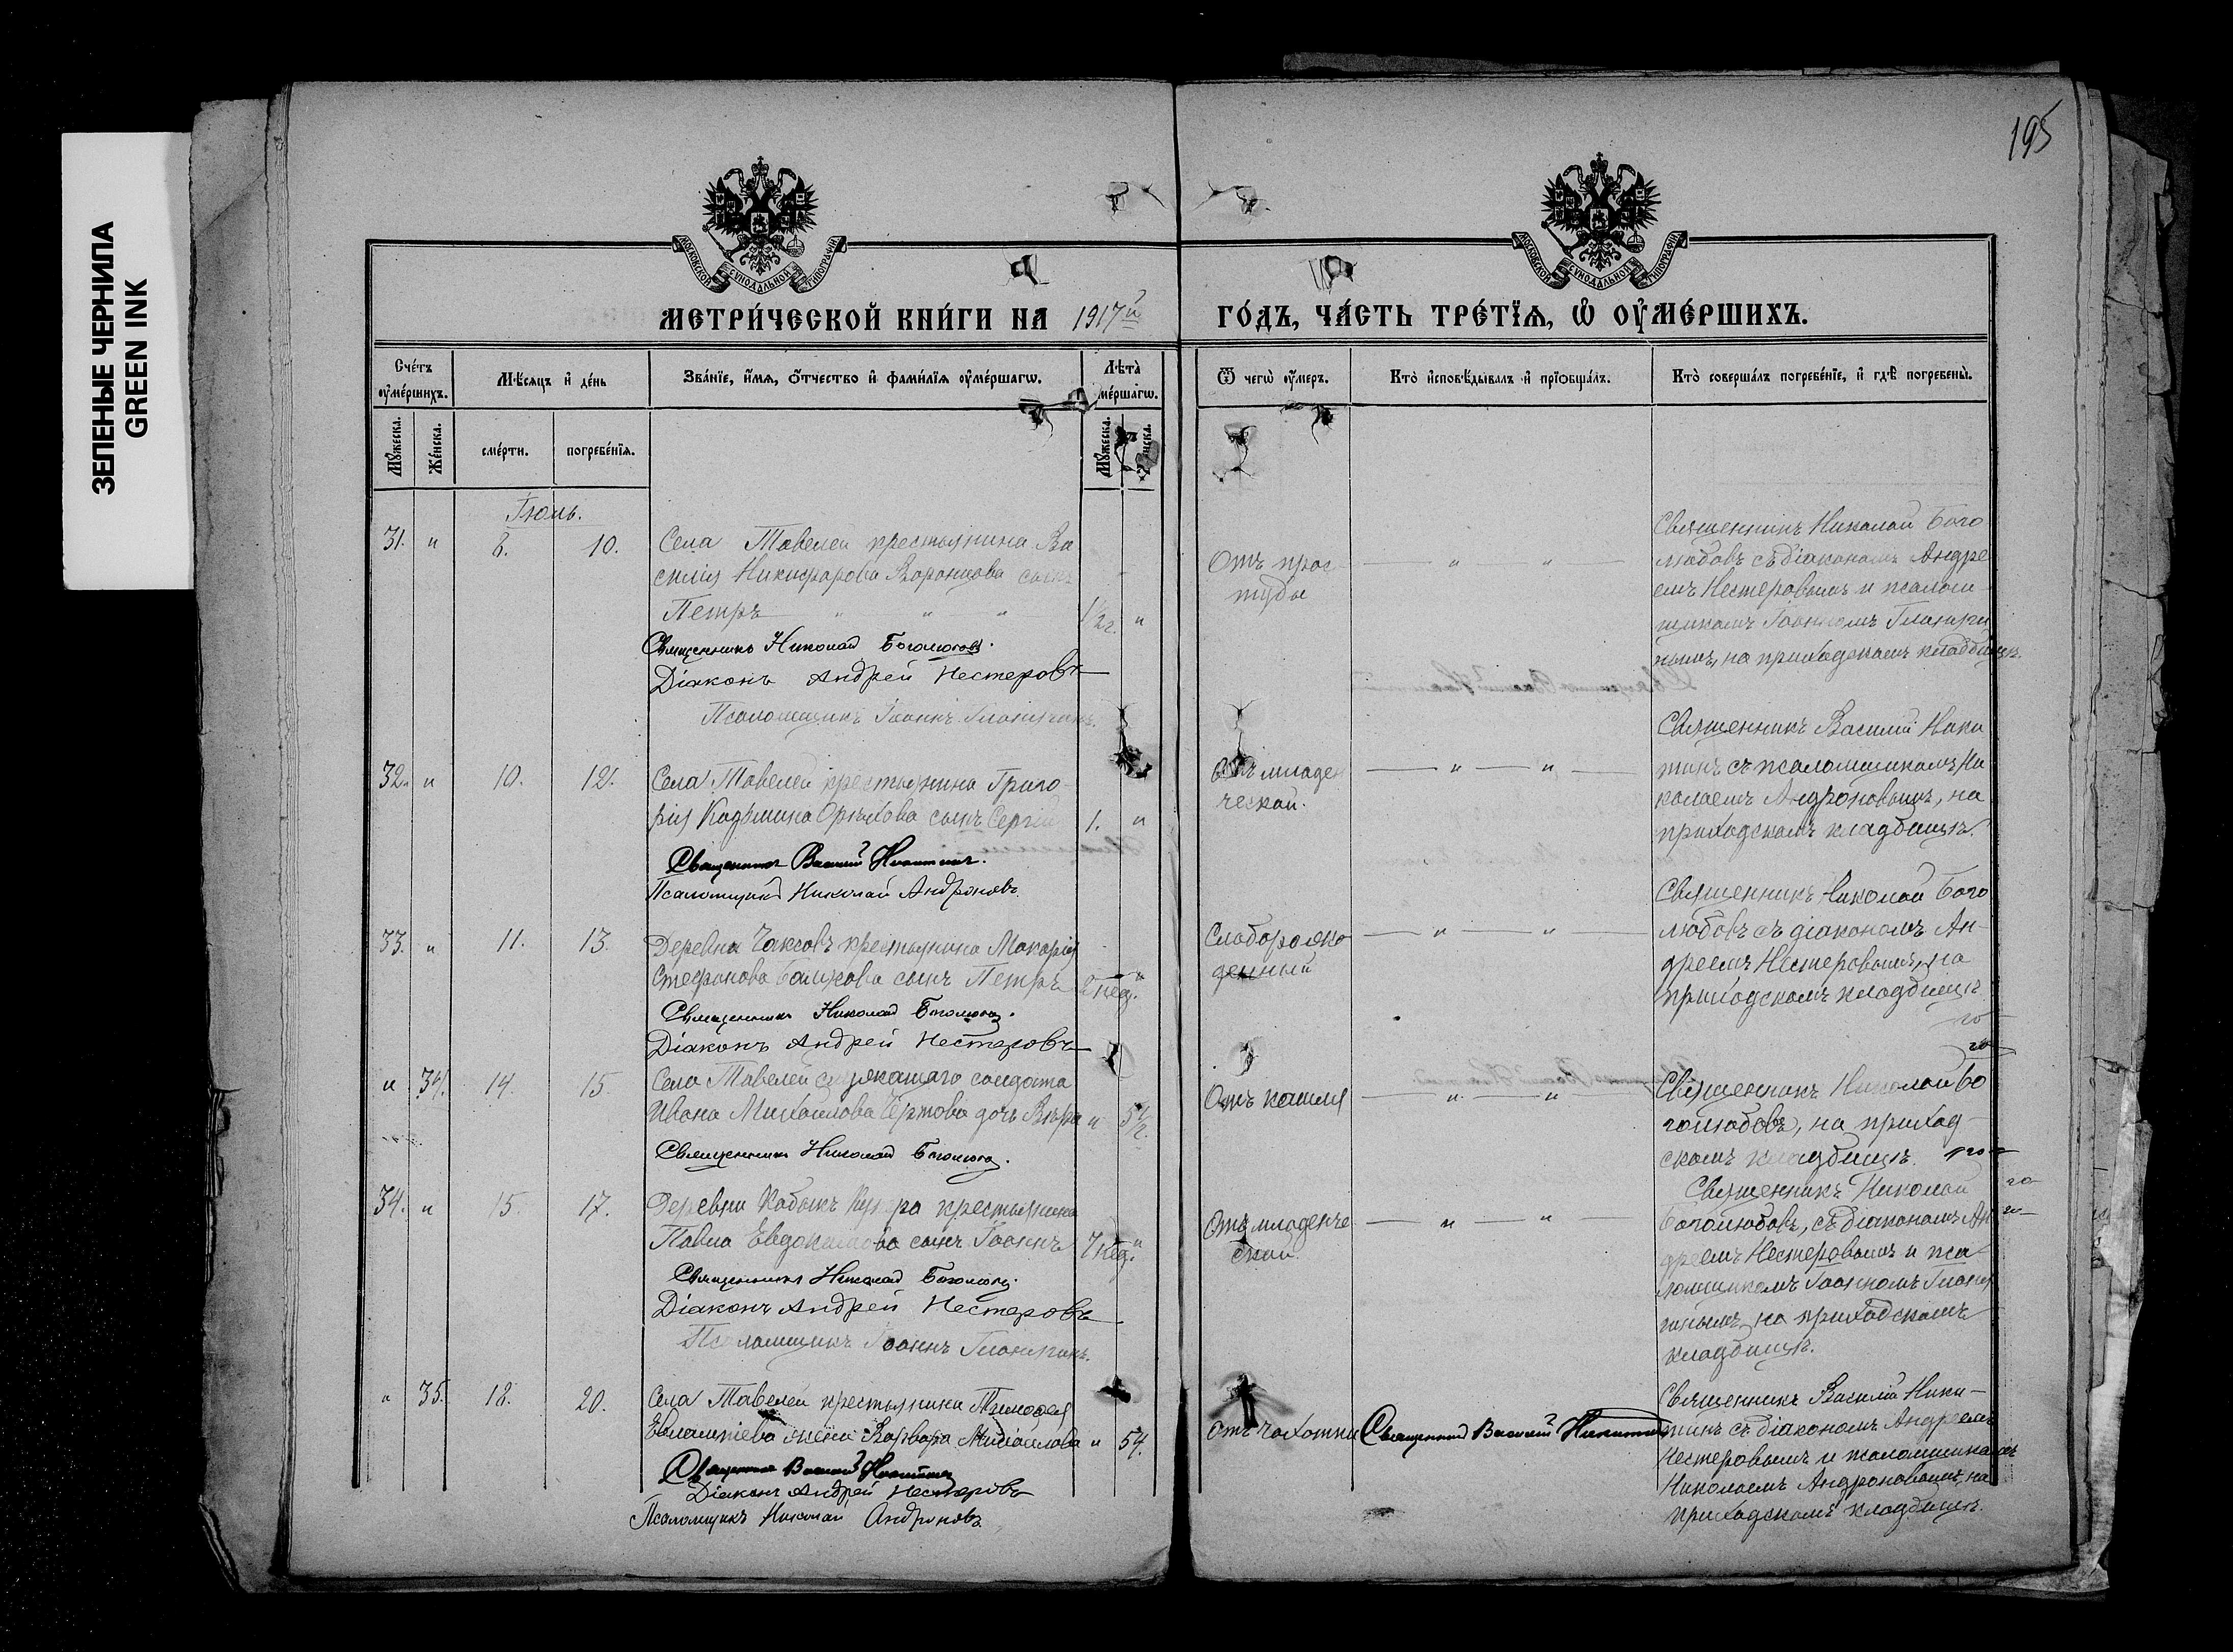 ЗЕЛЕНЫЕ ЧЕРНИЛА
GREEN INK
195
МОСКОВСКОЙ СѴНОДАЛЬНОЙ ТИПОГРАФІИ
МОСКОВСКОЙ СѴНОДАЛЬНОЙ ТИПОГРАФІИ
МЕТРИ́ЧЕСКОЙ КНИ́ГИ НА 1917й
ГО́ДЪ, ЧА́СТЬ ТРЕ́ТЇѦ, Ѡ҆ ОУ҆МЕ́РШИХЪ.
Сче́тъ оу҆ме́ршихъ.
Мѣ́сѧцъ и҆ де́нь
Зва́нїе, и҆́мѧ, ѻ҆́тчество и҆ фами́лїѧ оу҆ме́ршагѡ.
Лѣ́та ме́ршагѡ.
Ѿ чегѡ̀ оу҆́меръ.
Кто̀ и҆сповѣ́дывалъ и҆ прїѻбща́лъ.
Кто̀ соверша́лъ погребе́нїе, и҆ гдѣ̀ погребены̀.
Мꙋ́жеска.
Же́нска.
сме́рти.
погребе́нїѧ.
Мꙋ́жеска.
нска.
Іюль.
31. " 8. 10. Села Тавелей крестьянина Ва
силія Никифорова Воронцова сынъ
Петръ " " " 1/2 г. "
Священникъ Николай Боголюбовъ.
Діаконъ Андрей Нестеровъ
Псаломщикъ Іоаннъ
Отъ прос
туды
" "
Священникъ Николай Бого
любовъ съ діакономъ Андре
емъ Нестеровымъ и псалом
щикомъ Іоанномъ
нымъ, на приходскомъ кладбищѣ.
32. " 10. 12. Села Тавелей крестьянина Григо
рія Орѣхова сынъ Сергій 1. "
Священникъ Василій Никитинъ.
Псаломщикъ Николай Андроновъ.
Отъ младен
ческой.
" "
Священникъ Василій Ники
тинъ съ псаломщикомъ Ни
колаемъ Андроновымъ, на
приходскомъ кладбищѣ.
33. " 11. 13. Деревни Чаксовъ крестьянина Макарія
Стефанова сынъ Петръ 2 нед. "
Священникъ Николай Боголюбовъ.
Діаконъ Андрей Нестеровъ
Слаборож
денный
" "
Священникъ Николай Бого
любовъ съ діакономъ Ан-
дреемъ Нестеровымъ, на
приходскомъ кладбищѣ
" 34. 14. 15. Села Тавелей служащаго солдата
Ивана Михайлова Чертова дочь Вѣра " 5 1/2.
Священникъ Николай Боголюбовъ.
Отъ кашля
" "
Священникъ Николай Бо
голюбовъ, на приход-
скомъ кладбищѣ.
34. " 15. 17. Деревни Кабыкъ Купера крестьянина
Павла Евдокимова сынъ Іоаннъ 7 нед. "
Священникъ Николай Боголюбовъ.
Діаконъ Андрей Нестеровъ
Псаломщикъ Іоаннъ
Отъ младенче
ской
" "
Священникъ Николай
Боголюбовъ, съ діакономъ Ан
дреемъ Нестеровымъ и пса
ломщикомъ Іоанномъ
нымъ, на приходскомъ
кладбищѣ.
" 35. 18. 20. Села Тавелей крестьянина Тимофея
Евлампіева жена Варвара Михайлова " 54.
Священникъ Василій Никитинъ
Діаконъ Андрей Нестеровъ
Псаломщикъ Николай Андроновъ
Отъ чахотки
Священникъ Василій Никитинъ
Священникъ Василій Ники-
тинъ съ діакономъ Андреемъ
Нестеровымъ и псаломщикомъ
Николаемъ Андроновымъ, на
приходскомъ кладбищѣ.